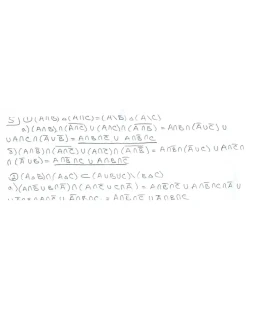 (A∩B)△(A∩C)=(A\B)△(A\C)
a)(A∩B)∩(A̅∩̅C̅)∪(A∩C)∩(A̅∩̅B̅) = A∩B∩(A̅∪C̅)∪
∪A∩C∩(A̅∪B̅)= A∩B∩C̅ ∪ A∩B̅∩C
(A∩B̅)∩(A∩C̅)∪(A∩C̅)∩(A∩B̅) = A∩B̅∩(A̅∪C)∪A∩C̅∩
∩(A̅∪B)= A∩B̅∩C ∪ A∩B∩C̅
② (A△B)∩(A△C) ⊂ (A∪B∪C)\(B△C)
a)(A∩B̅∪B∩A̅)∩(A∩C̅∪C∩A̅) = A∩B̅∩C̅ ∪ A∩B̅∩C∩A̅ ∪